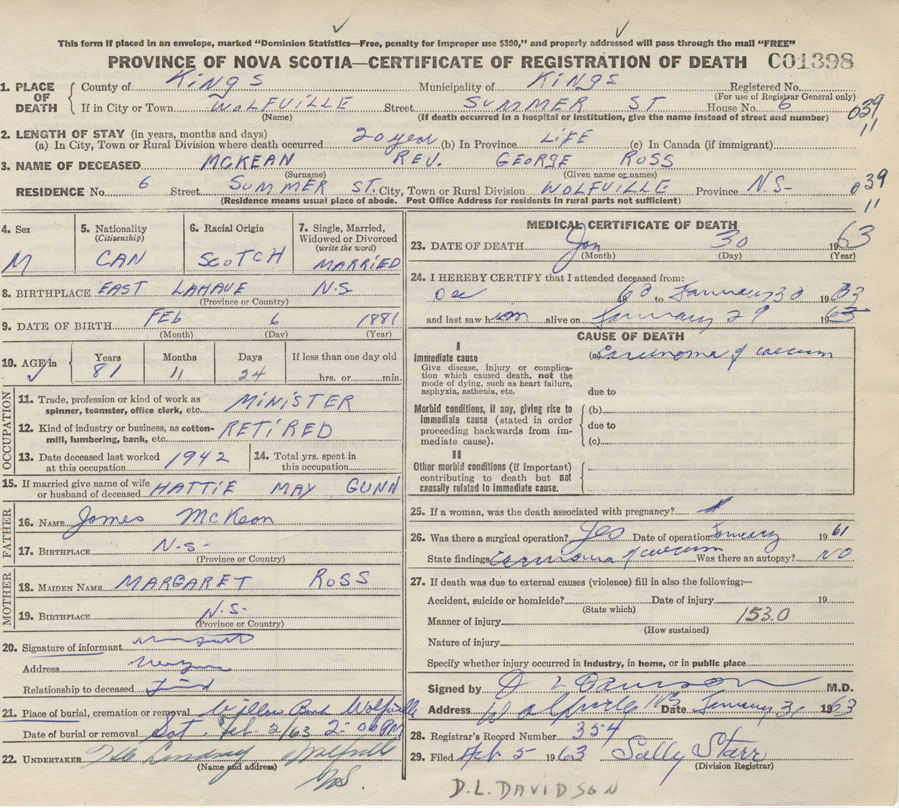 This form if placed in an envelope, marked "Dominion Statistics—Free, penalty for improper use $300," and properly addressed will pass through the mail "FREE"
PROVINCE OF NOVA SCOTIA—CERTIFICATE OF REGISTRATION OF DEATH C01398
1. PLACE OF DEATH
County of Kings Municipality of Kings Registered No.
(For use of Registrar General only)
If in City or Town WOLFVILLE Street SUMMER ST House No. 6 039
(Name) (If death occurred in a hospital or institution, give the name instead of street and number) 11
2. LENGTH OF STAY (in years, months and days)
(a) In City, Town or Rural Division where death occurred 20 year (b) In Province LIFE (c) In Canada (if immigrant)
3. NAME OF DECEASED MCKEAN REV. GEORGE ROSS
(Surname) (Given name or names)
RESIDENCE No. 6 Street SUMMER ST. City, Town or Rural Division WOLFVILLE Province N.S- 039
(Residence means usual place of abode. Post Office Address for residents in rural parts not sufficient) 11
4. Sex
M
5. Nationality
(Citizenship)
CAN
6. Racial Origin
SCOTCH
7. Single, Married, Widowed or Divorced
(write the word)
MARRIED
8. BIRTHPLACE EAST LAHAVE N.S.
(Province or Country)
9. DATE OF BIRTH FEB 6 1881
(Month) (Day) (Year)
10. AGE in Years Months Days If less than one day old
81 11 24 hrs. or min.
OCCUPATION
11. Trade, profession or kind of work as spinner, teamster, office clerk, etc. MINISTER
12. Kind of industry or business, as cotton-mill, lumbering, bank, etc. RETIRED
13. Date deceased last worked at this occupation 1942
14. Total yrs. spent in this occupation
15. If married give name of wife or husband of deceased HATTIE MAY GUNN
FATHER
16. NAME James McKean
17. BIRTHPLACE N.S.
(Province or Country)
MOTHER
18. MAIDEN NAME MARGARET ROSS
19. BIRTHPLACE N.S.
(Province or Country)
20. Signature of informant
Address
Relationship to deceased
21. Place of burial, cremation or removal Willow Bank Wolfville
Date of burial or removal Sat. Feb 2/63 2:00 PM
22. UNDERTAKER Lindsay
(Name and address)
N.S.
MEDICAL CERTIFICATE OF DEATH
23. DATE OF DEATH Jan 30 1963
(Month) (Day) (Year)
24. I HEREBY CERTIFY that I attended deceased from:
Dec 1960 to January 30 1963
and last saw him alive on January 29 1963
CAUSE OF DEATH
I
Immediate cause
Give disease, injury or complication which caused death, not the mode of dying, such as heart failure, asphyxia, asthenia, etc.
(a) Carcinoma of caecum
due to
Morbid conditions, if any, giving rise to immediate cause (stated in order proceeding backwards from immediate cause).
(b)
due to
(c)
II
Other morbid conditions (if important) contributing to death but not causally related to immediate cause.
25. If a woman, was the death associated with pregnancy?
26. Was there a surgical operation? Yes Date of operation January 1961
State findings Carcinoma of caecum Was there an autopsy? NO
27. If death was due to external causes (violence) fill in also the following:—
Accident, suicide or homicide? Date of injury 19
(State which)
Manner of injury 153.0
(How sustained)
Nature of injury
Specify whether injury occurred in industry, in home, or in public place
Signed by D L Davidson M.D.
Address Wolfville NS Date January 31 1963
28. Registrar's Record Number 354
29. Filed Feb 5 1963 Sally Starr
(Division Registrar)
D.L. DAVIDSON